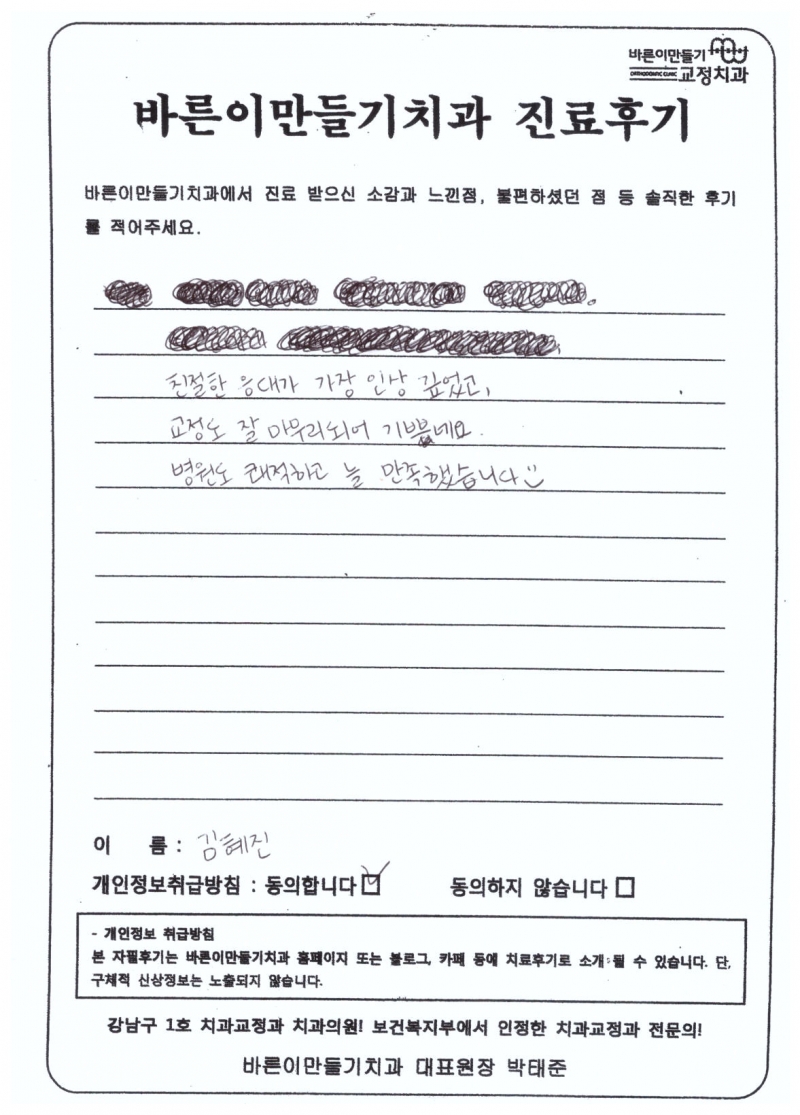 바른이만들기
ORTHODONTIC CLINIC 교정치과
바른이만들기치과 진료후기
바른이만들기치과에서 진료 받으신 소감과 느낀점, 불편하셨던 점 등 솔직한 후기
를 적어주세요.
친절한 응대가 가장 인상 깊었고,
교정도 잘 마무리되어 기쁘네요.
병원도 쾌적하고 늘 만족했습니다
이 름 : 김혜진
개인정보취급방침 : 동의합니다 동의하지 않습니다
- 개인정보 취급방침
본 자필후기는 바른이만들기치과 홈페이지 또는 블로그, 카페 등에 치료후기로 소개 될 수 있습니다. 단,
구체적 신상정보는 노출되지 않습니다.
강남구 1호 치과교정과 치과의원! 보건복지부에서 인정한 치과교정과 전문의!
바른이만들기치과 대표원장 박태준